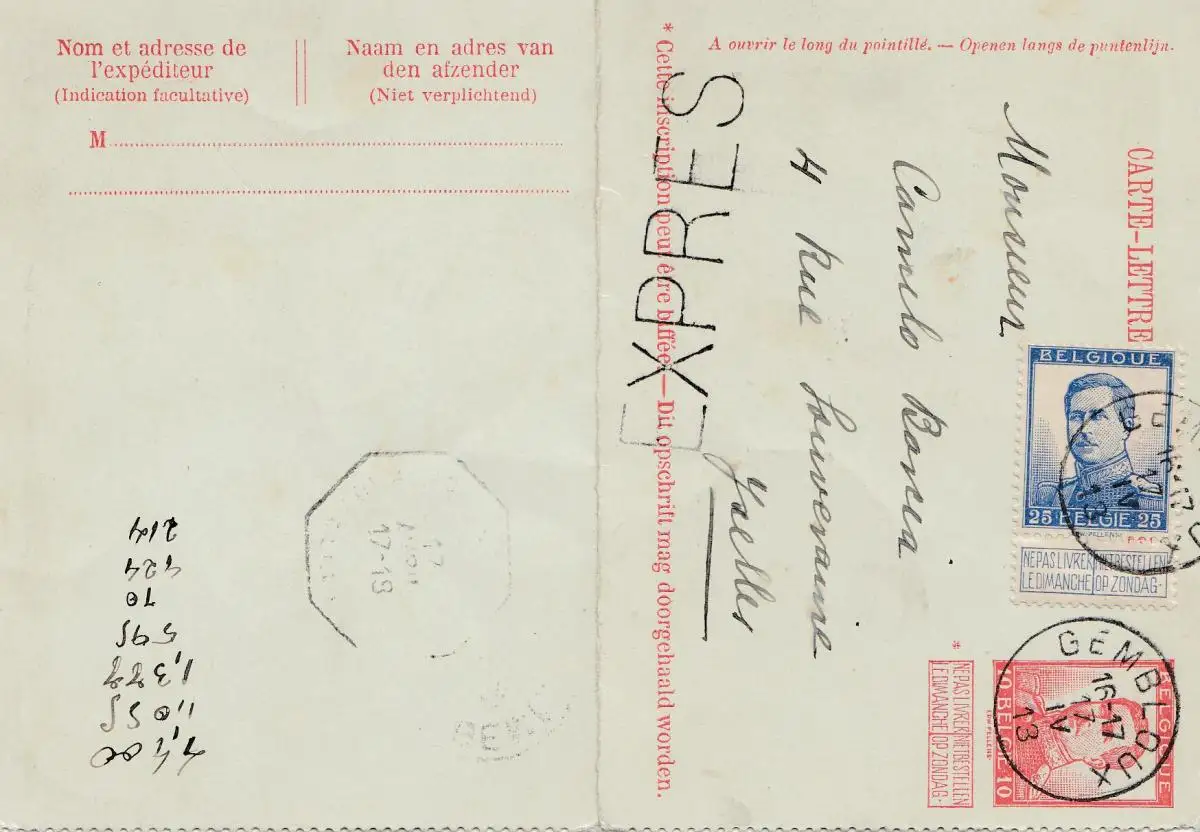 Nom et adresse de
l'expéditeur
(Indication facultative)
Naam en adres van
den afzender
(Niet verplichtend)
M
A ouvrir le long du pointillé. — Openen langs de puntenlijn.
CARTE-LETTRE
Monsieur
Camilo
4 Rue Souveraine
Ixelles
EXPRES
* Cette inscription peut être biffée. — Dit opschrift mag doorgehaald worden.
BELGIQUE
25 BELGIË 25
NE PAS LIVRER NIET BESTELLEN
LE DIMANCHE OP ZONDAG
GEMBLOUX
16-17
17
IV
13
*
NE PAS LIVRER NIET BESTELLEN
LE DIMANCHE OP ZONDAG
BELGIQUE
10 BELGIË 10
17
17-18
214
424
70
595